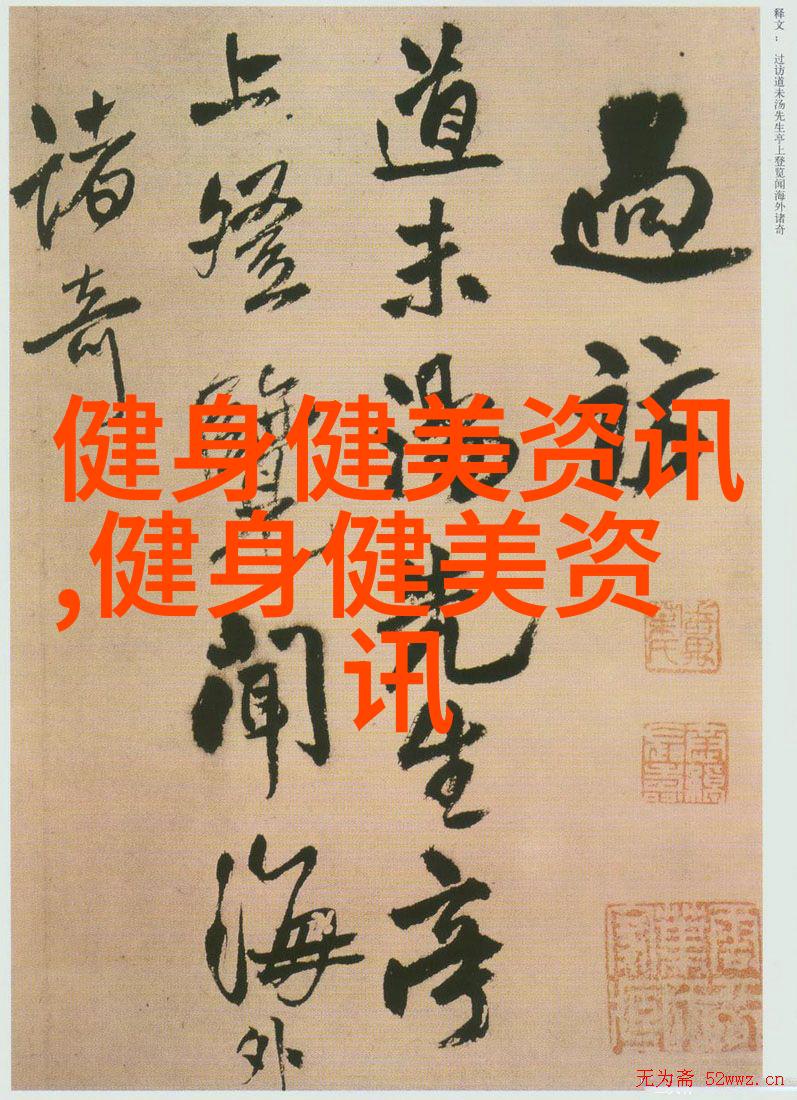 释文： 过访道未汤先生亭上登览闻海外诸奇
過訪
道未湯先生亭
上登覽聞海外
諸奇
健身健美资讯
,健身健美资
讯
无为斋 52wwz.cn